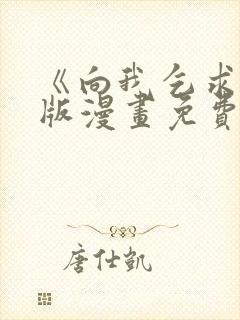 《向我乞求
版漫畫免費
唐仕凱